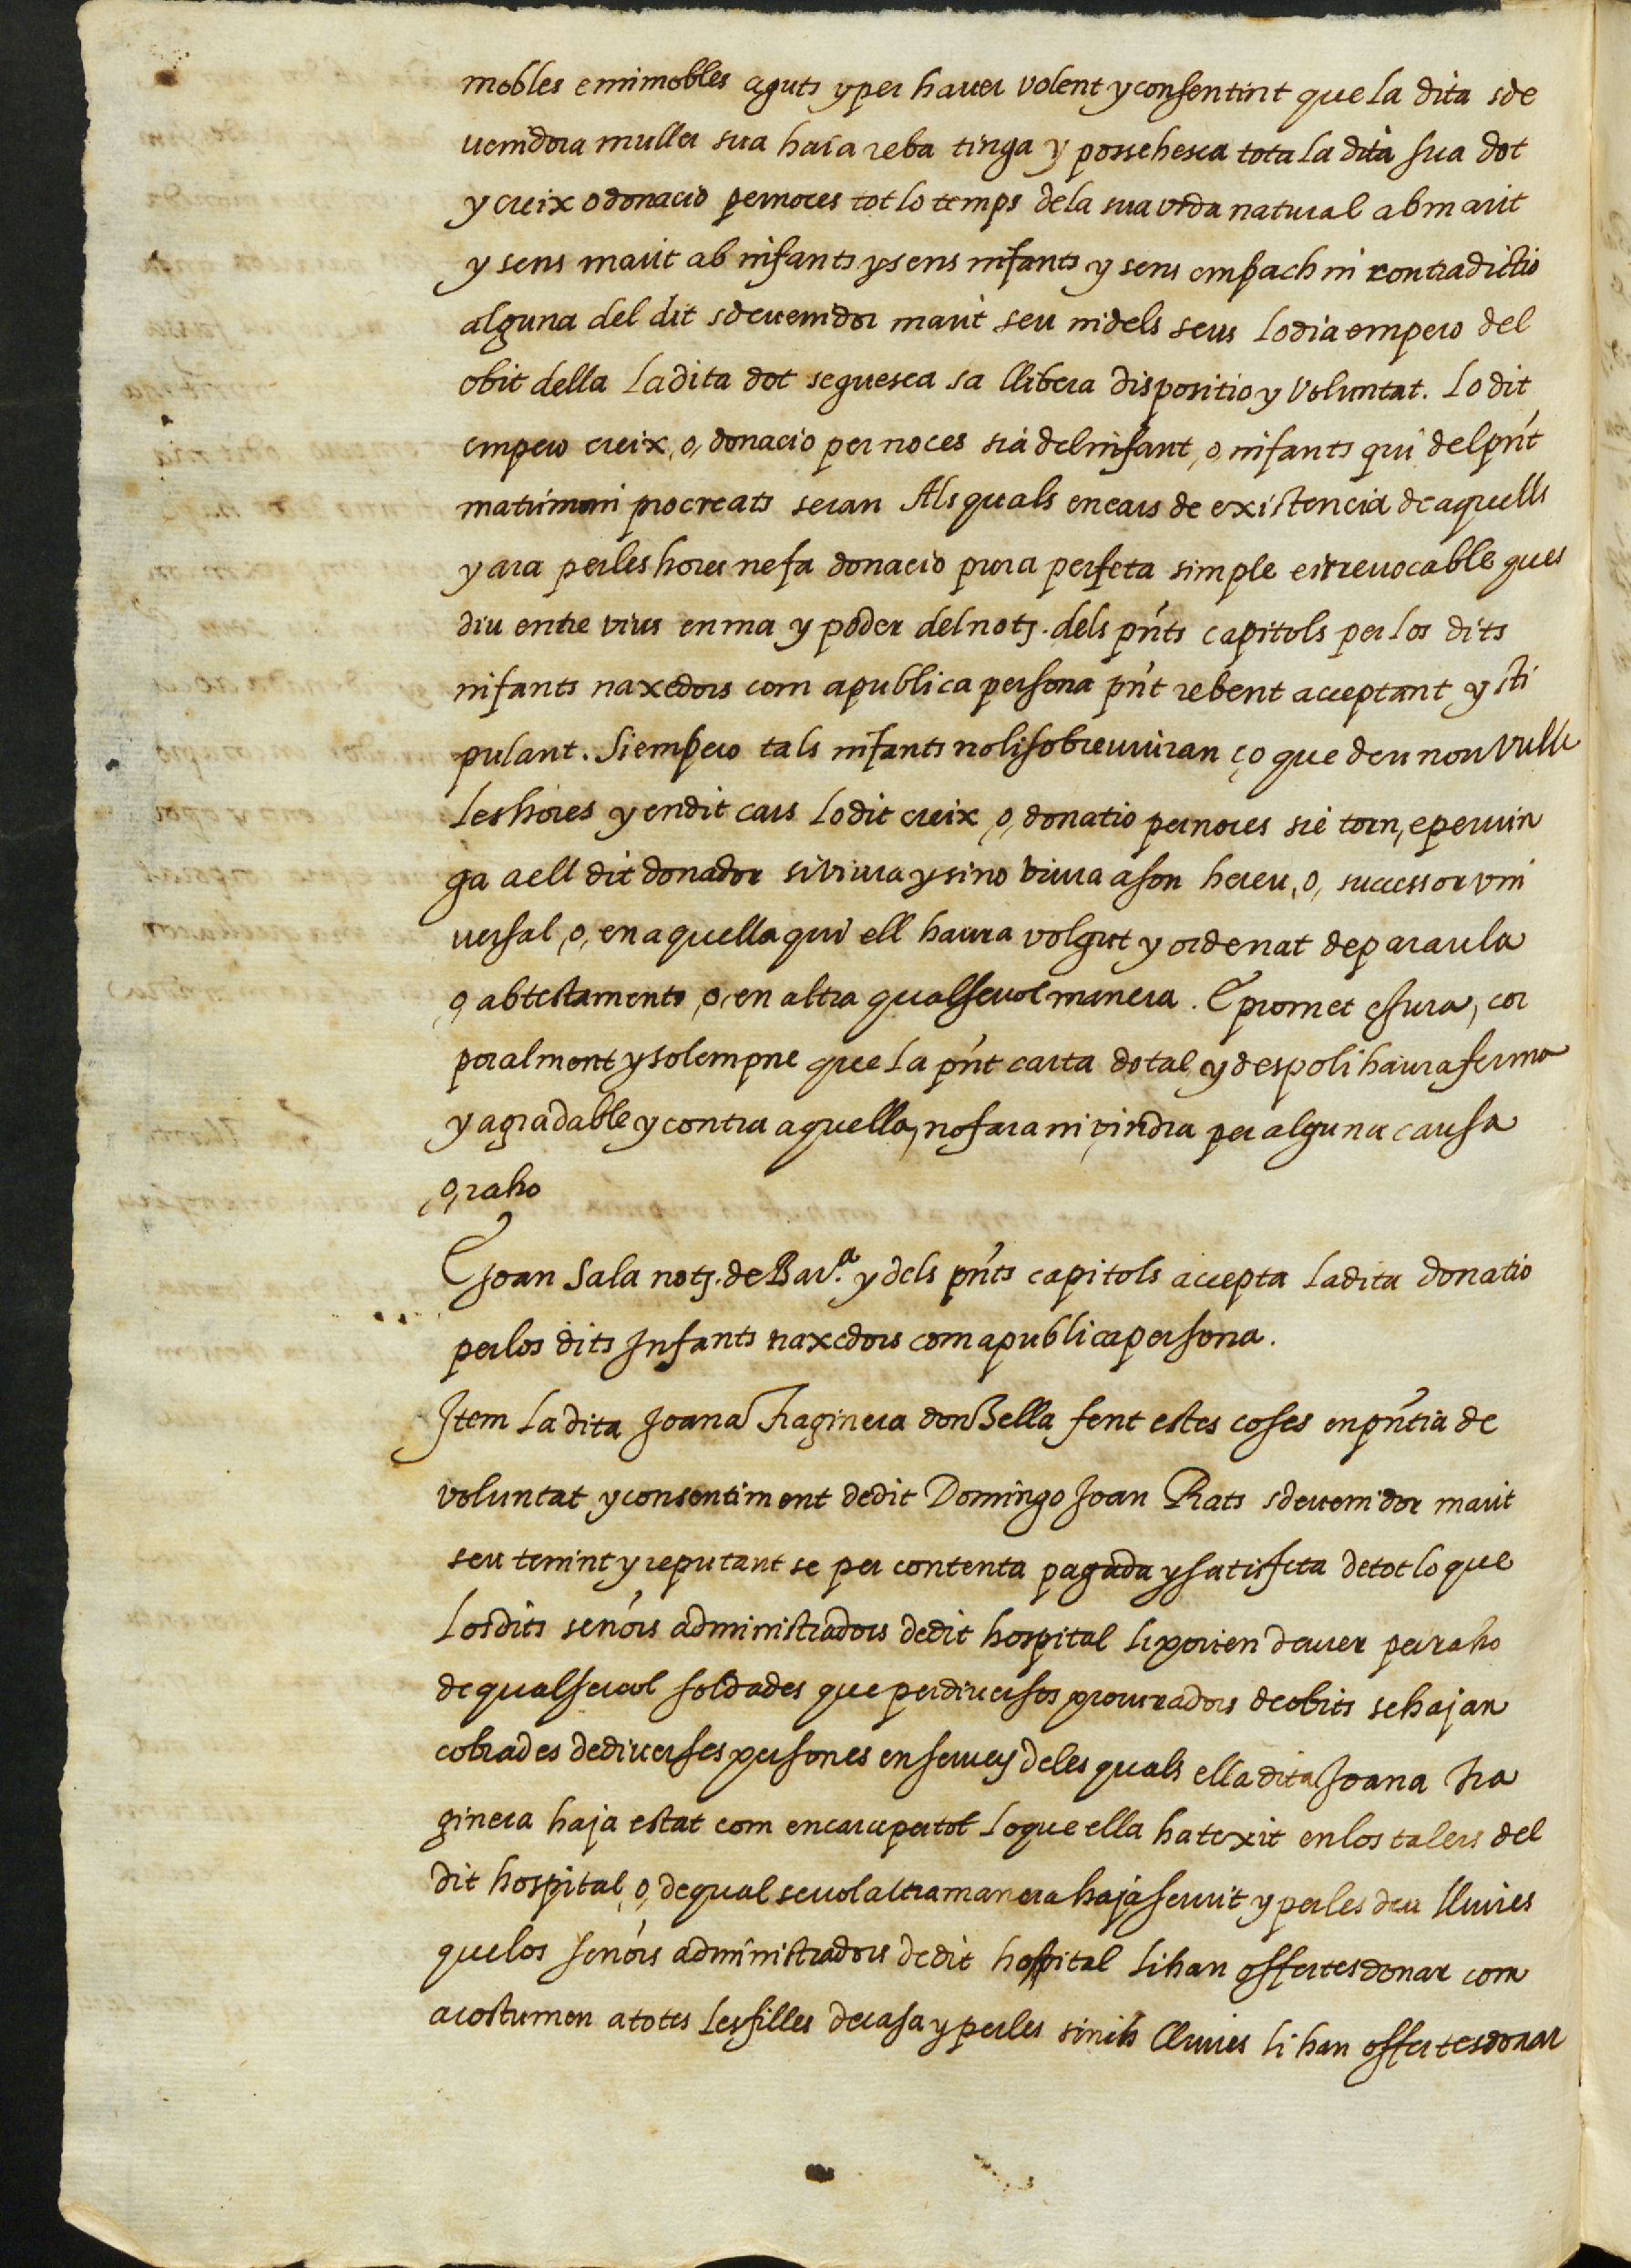 mobles e inmobles aguts y per hauer volent y consentint que la dita sde
uenidora muller sua haia reba tinga y possehesca tota la dita sua dot
y creix o donacio per noces tot lo temps de la sua vida natural ab marit
y sens marit ab infants y sens infants y sens empach ni contradictio
alguna del dit sdeuenidor marit seu ni dels seus Lo dia empero del
obit della La dita dot seguesca sa llibera dispositio y voluntat. Lo dit
empero creix, o, donacio per noces sia del infant, o, infants qui del pñt
matrimoni procreats seran Als quals en cars de existencia de aquells
y ara per les hores ne fa donacio pura perfeta simple e irreuocable ques
diu entre vius en ma y poder del notj. dels pñts capitols per los dits
infants naxedors com a publica persona pñt rebent acceptant y sti
pulant. Si empero tals infants no li sobreuiuiran ço que deu non vulle
Les hores y en dit cars Lo dit creix, o, donatio per noces sie torn, e peruin
ga a ell dit donador si viura y si no viura a son hereu, o, successor vni
uersal, o, en aquella qui ell haura volgut y ordenat de paraula
, o, ab testaments, o, en altra qualseuol manera. E promet e jura, cor
poralment y solempne que la pñt carta dotal, y de espoli haura ferma
y agradable y contra aquella, no fara ni vindra per alguna causa
, o, raho
E Joan Sala notj. de Bar.ᵃ y dels pñts capitols accepta La dita donatio
per los dits Infants naxedors com a publica persona.
Item La dita Joana Traginera donzella fent estes coses en pñtia de
voluntat y consentiment de dit Domingo Joan Prats sdeuenidor marit
seu tenint y reputant se per contenta pagada y satisfeta de tot lo que
Los dits señors administradors de dit hospital li porien deuer per raho
de qualseuol soldades que per diuersos procuradors de obits se hajan
cobrades de diuerses persones en seruey de les quals ella dita Joana Tra
ginera haja estat com encara per tot Lo que ella ha texit en los talers del
dit hospital, o, de qualseuol altra manera haja seruit y per les deu lliures
que los señors administradors de dit hospital li han offertes donar com
acostumen a totes Les filles de casa y per les sinch lliures li han offertes donar